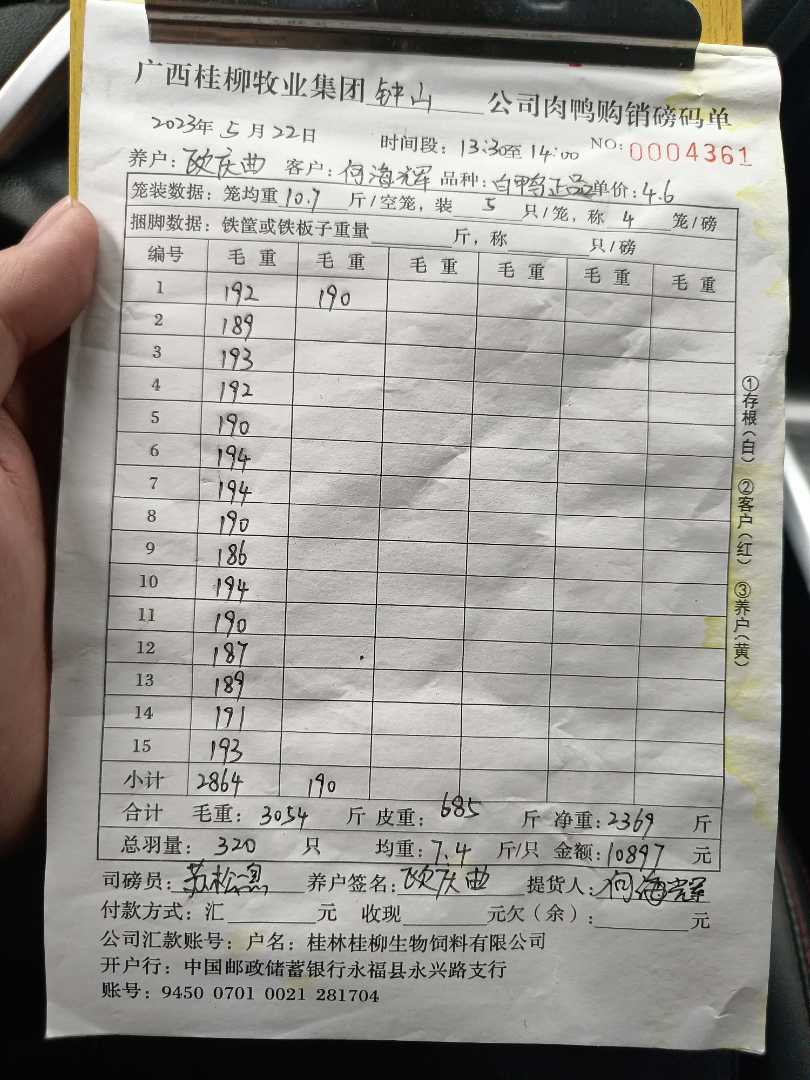 广西桂柳牧业集团钟山公司肉鸭购销磅码单
2023年5月22日 时间段：13:30至14:00 NO: 0004361
养户：欧庆曲 客户：何海辉 品种：白鸭正品 单价：4.6
笼装数据：笼均重10.7斤/空笼，装5只/笼，称4笼/磅
捆脚数据：铁筐或铁板子重量______斤，称______只/磅
编号 毛重 毛重 毛重 毛重 毛重 毛重
1 192 190
2 189
3 193
4 192
5 190
6 194
7 194
8 190
9 186
10 194
11 190
12 187
13 189
14 191
15 193
小计 2864 190
合计 毛重：3054斤 皮重：685斤 净重：2369斤
总羽量：320只 均重：7.4斤/只 金额：10897元
司磅员：苏松 养户签名：欧庆曲 提货人：何海辉
付款方式：汇______元 收现______元欠（余）：______元
公司汇款账号：户名：桂林桂柳生物饲料有限公司
开户行：中国邮政储蓄银行永福县永兴路支行
账号：9450 0701 0021 281704
①存根（白） ②客户（红） ③养户（黄）